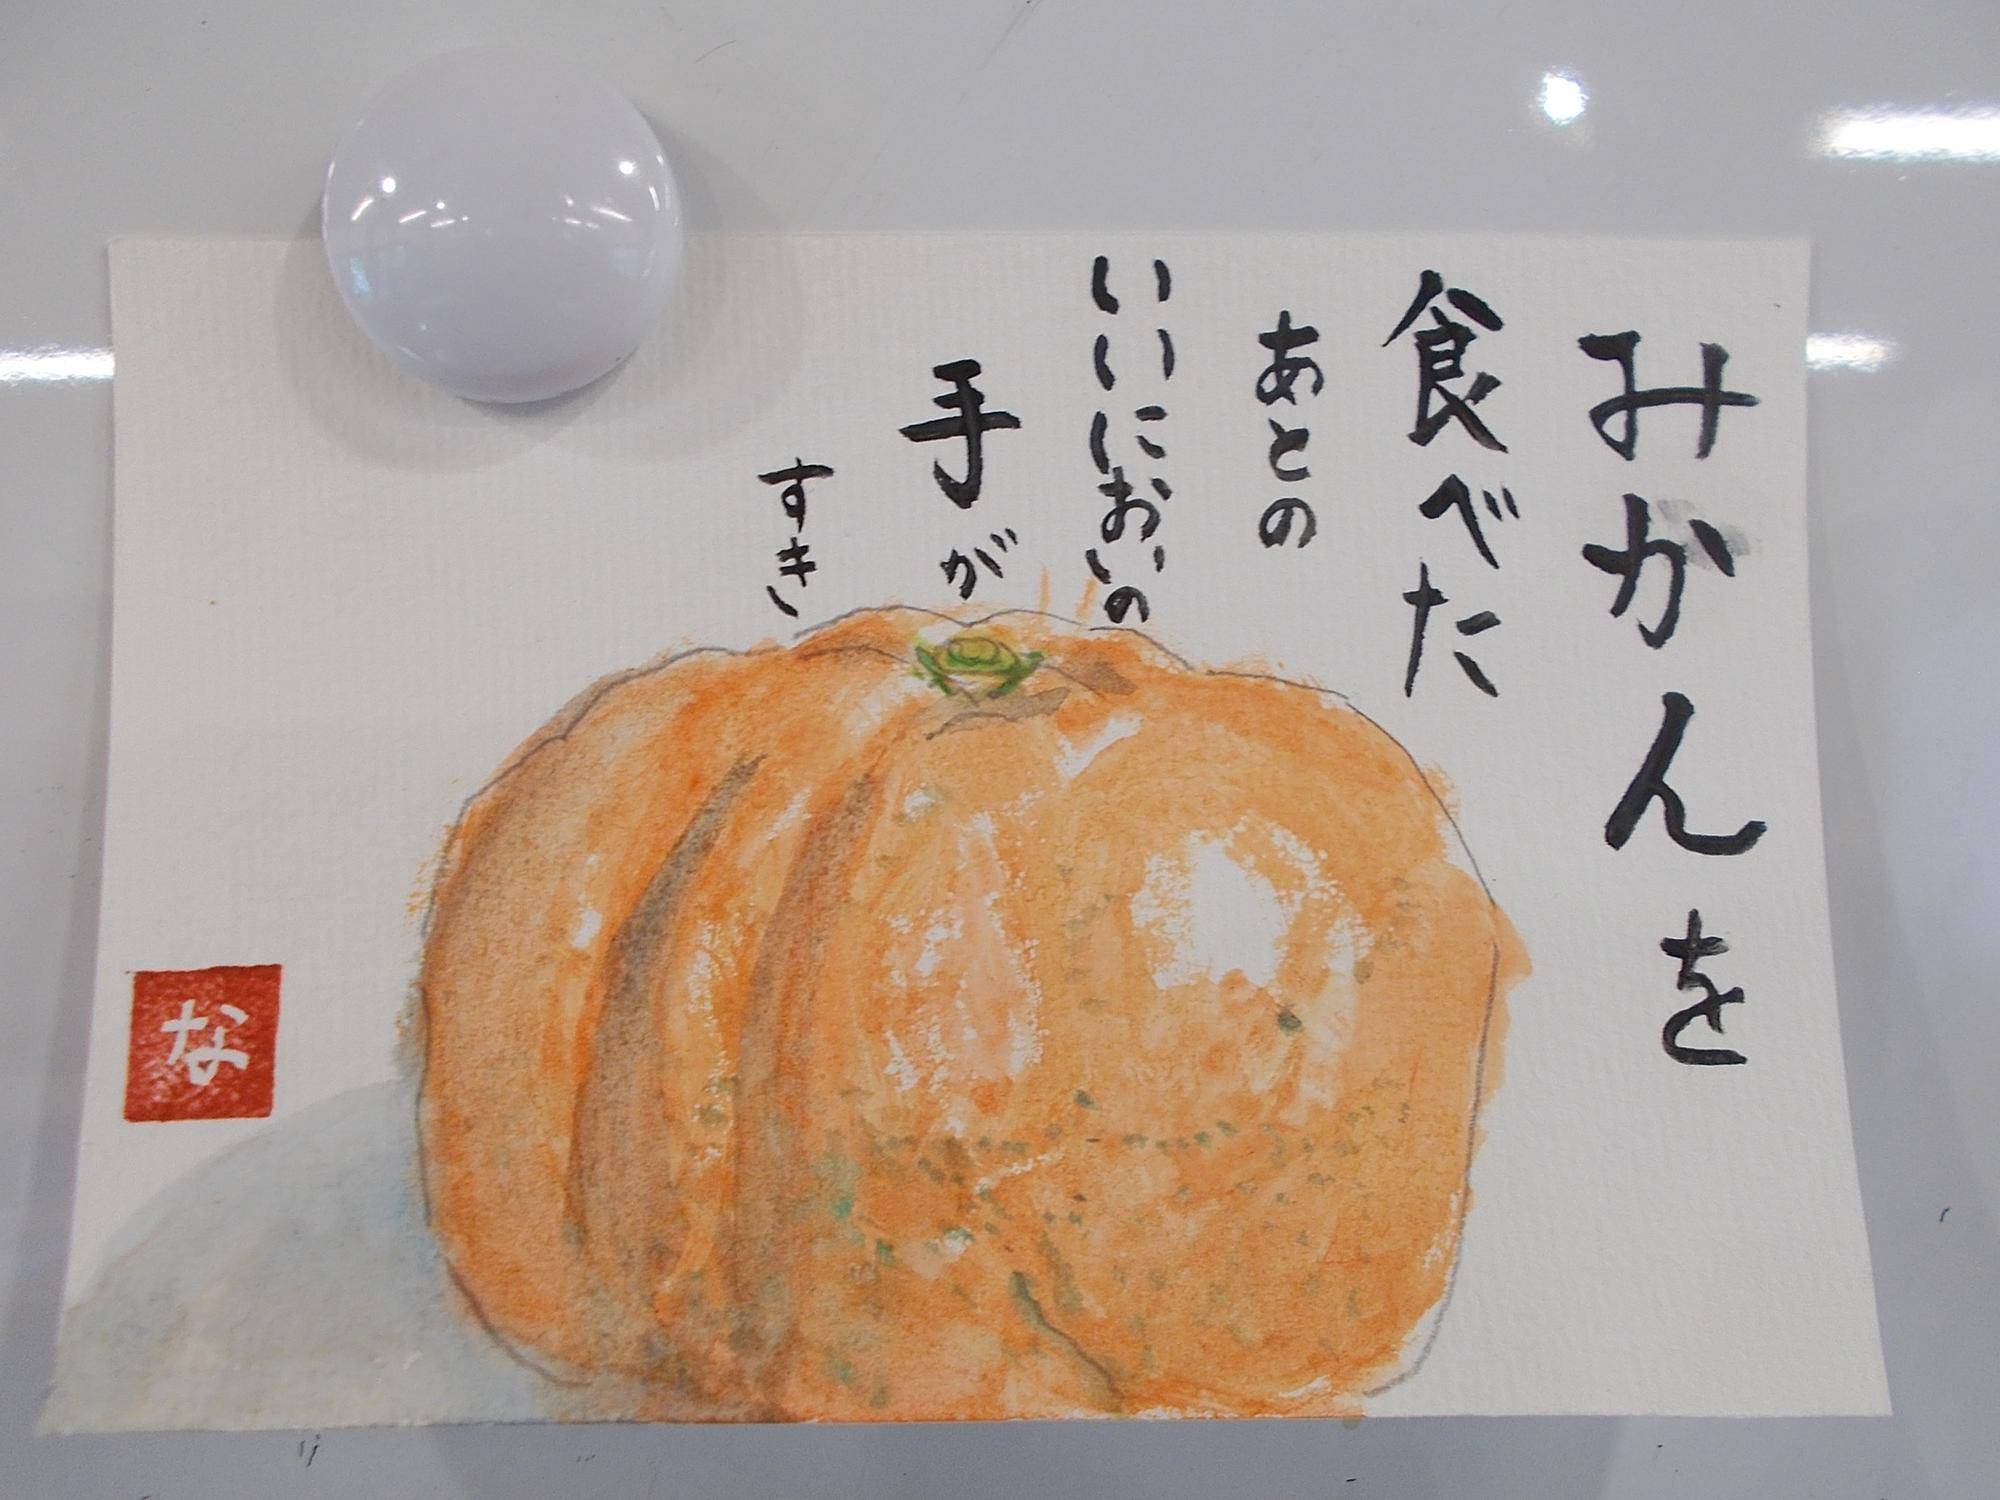 みかんを
食べた
あとの
いいにおいの
手が
すき
な